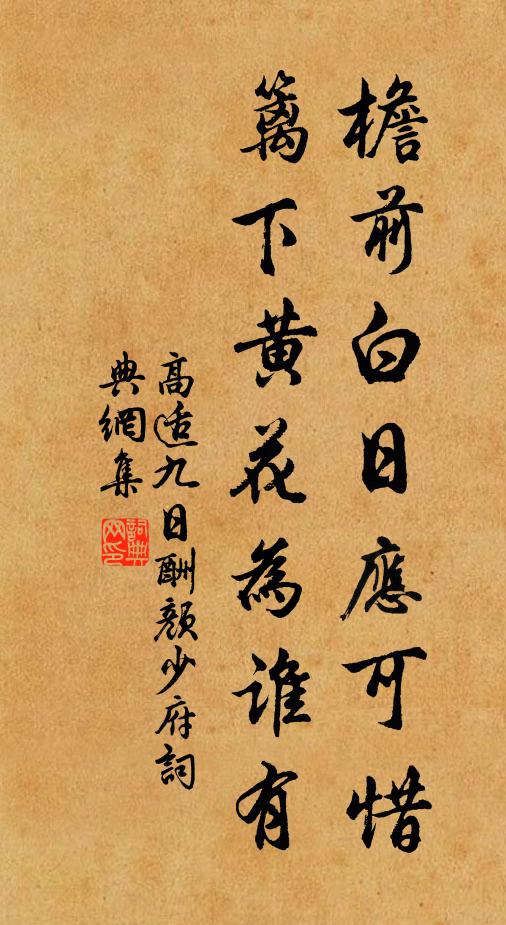 檐前白日應可惜
籬下黃花為誰有
高適九日酬顏少府詞
典網集
詞典網印